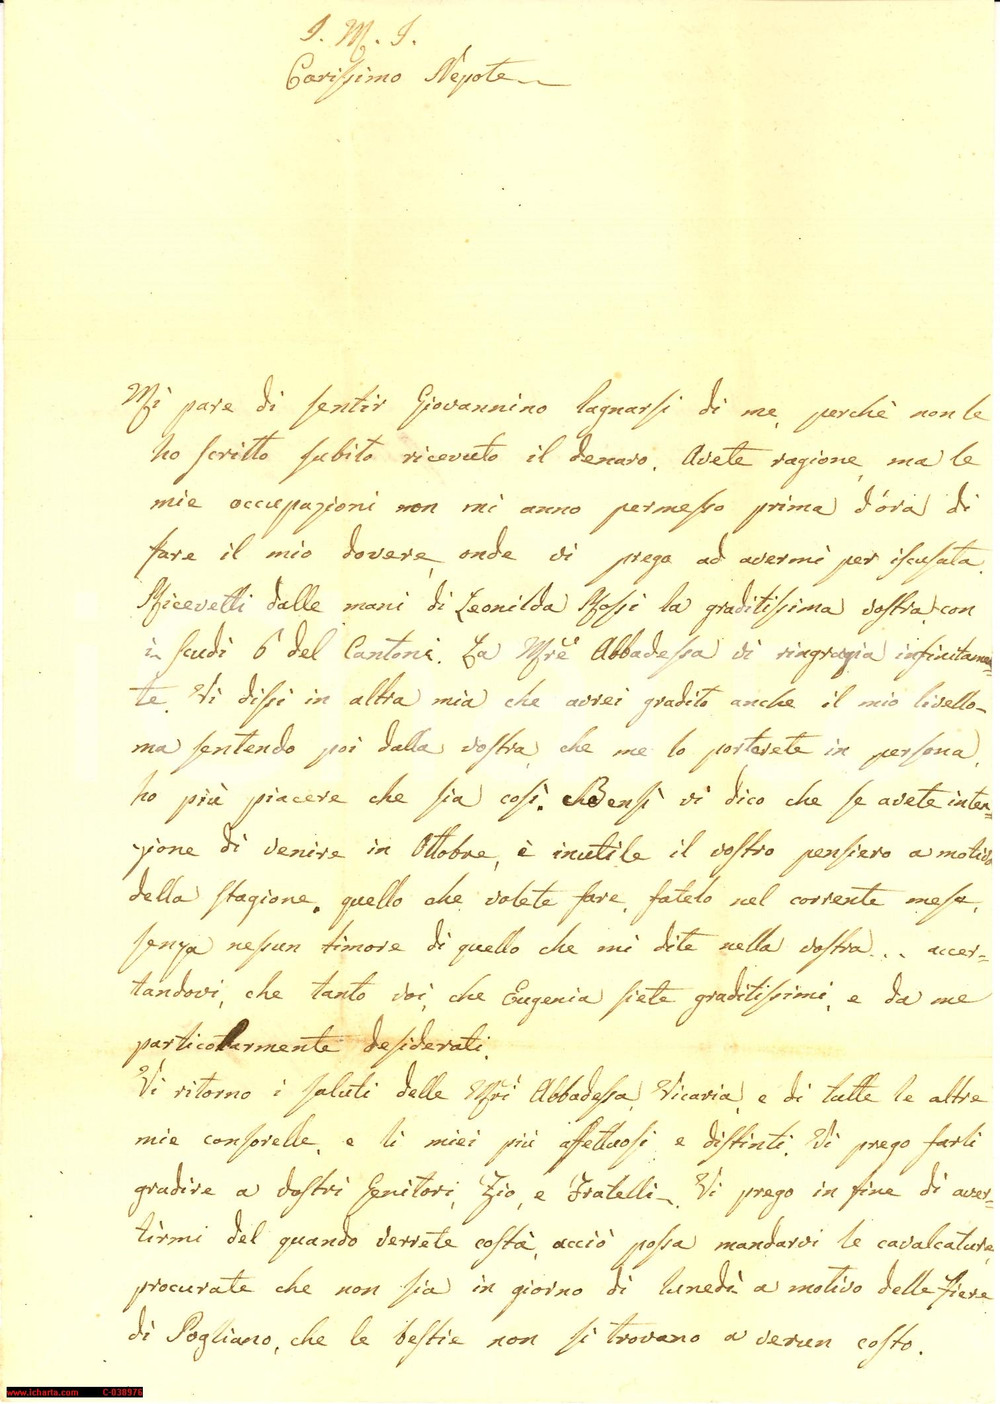 J. M. J.
Carissimo Nepote
Mi pare di sentir Giovannino lagnarsi di me, perchè non le
ho scritto subito ricevuto il denaro. Avete ragione, ma le
mie occupazioni non mi anno permesso prima d'óra di
fare il mio dovere, onde vi prego ad avermi per iscusata.
Ricevetti dalle mani di Leonilda Rossi la graditissima vostra con
i scudi 6 del Cantoni. La Mrē Abbadessa vi ringrazia infinitamen=
te. Vi dissi in altra mia che avrei gradito anche il mio livello
ma sentendo poi dalla vostra, che me lo porterete in persona,
ho più piacere che sia così. Bensì vi dico che se avete inten=
zione di venire in Ottobre, è inutile il vostro pensiero a motivo
della stagione, quello che volete fare, fatelo nel corrente mese,
senza nessun timore di quello che mi dite nella vostra... accer=
tandovi, che tanto voi, che Eugenia siete graditissimi, e da me
particolarmente desiderati.
Vi ritorno i saluti delle Mrī Abbadessa, Vicaria, e di tutte le altre
mie consorelle, e li miei più affettuosi e distinti. Vi prego farli
gradire a vostri Genitori, Zio, e Fratelli. Vi prego in fine di aver=
tirmi del quando verrete costà, acciò possa mandarvi le cavalcature,
procurate che non sia in giorno di lunedì a motivo delle fiere
di Pogliano, che le bestie non si trovano a verun costo.
www.icharta.com C-038976